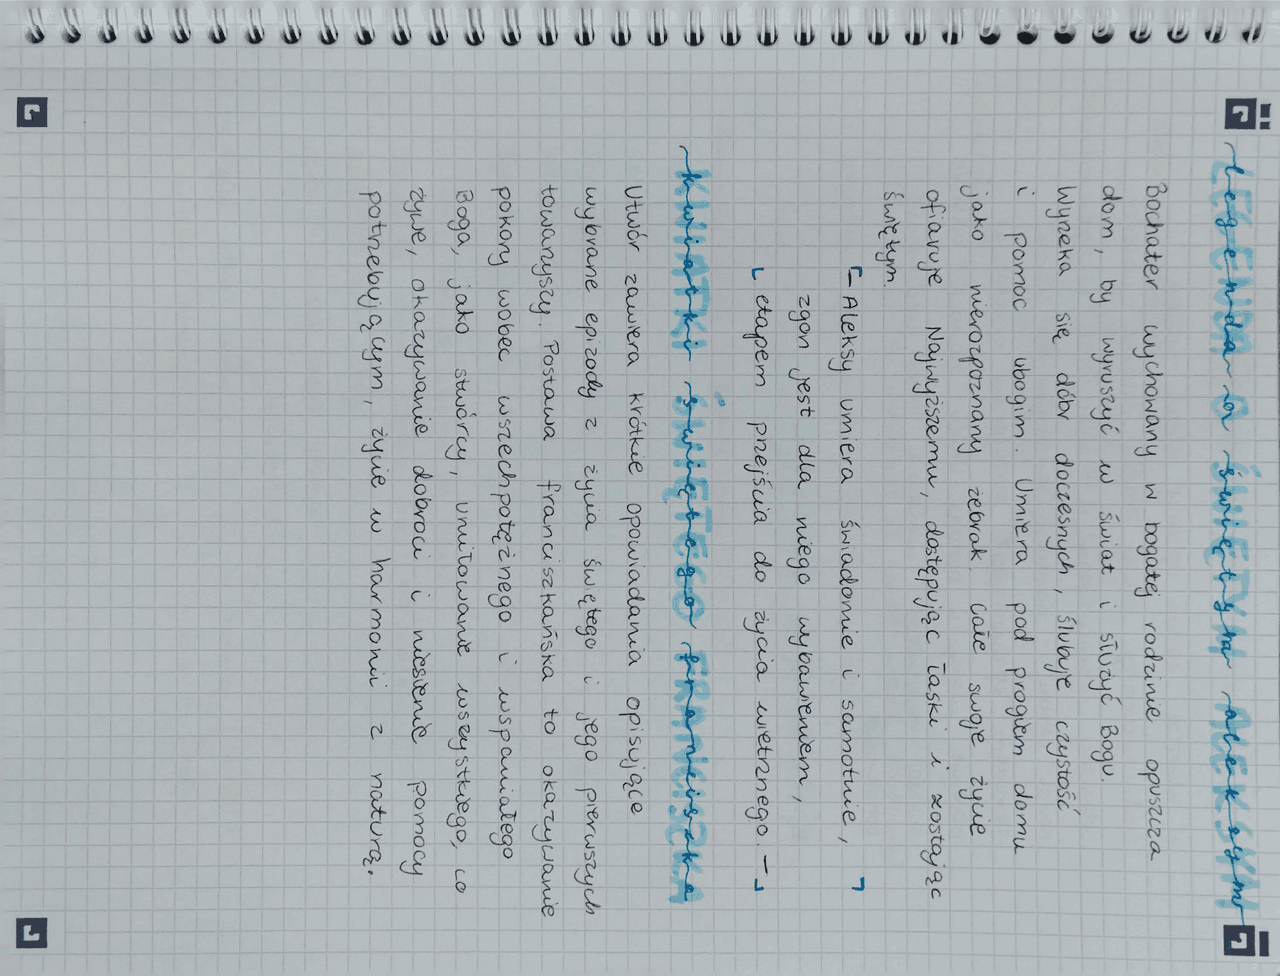 legenda o świętym aleksym
Bochater wychowany w bogatej rodzinie opuszcza
dom, by wyruszyć w świat i służyć Bogu.
Wyrzeka się dóbr doczesnych, ślubuje czystość
i pomoc ubogim. Umiera pod progiem domu
jako nierozpoznany żebrak całe swoje życie
ofiaruje Najwyższemu, dostępując łaski i zostając
świętym.
– Aleksy umiera świadomie i samotnie,
zgon jest dla niego wybawieniem,
etapem przejścia do życia wietrznego. –
kwiatki świętego franciszka
Utwór zawiera krótkie opowiadania opisujące
wybrane epizody z życia świętego i jego pierwszych
towarzyszy. Postawa franciszkańska to okazywanie
pokory wobec wszechpotężnego i wspaniałego
Boga, jako stwórcy, umiłowanie wszystkiego, co
żywe, okazywanie dobroci i niesienie pomocy
potrzebującym, życie w harmonii z naturą.